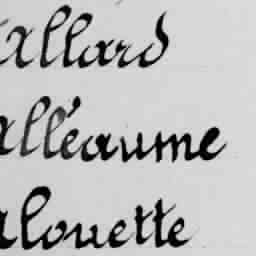 Allard
Alléaume
Alouette